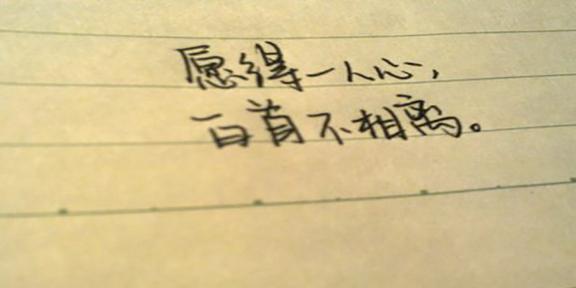 愿得一人心,
百首不相离。